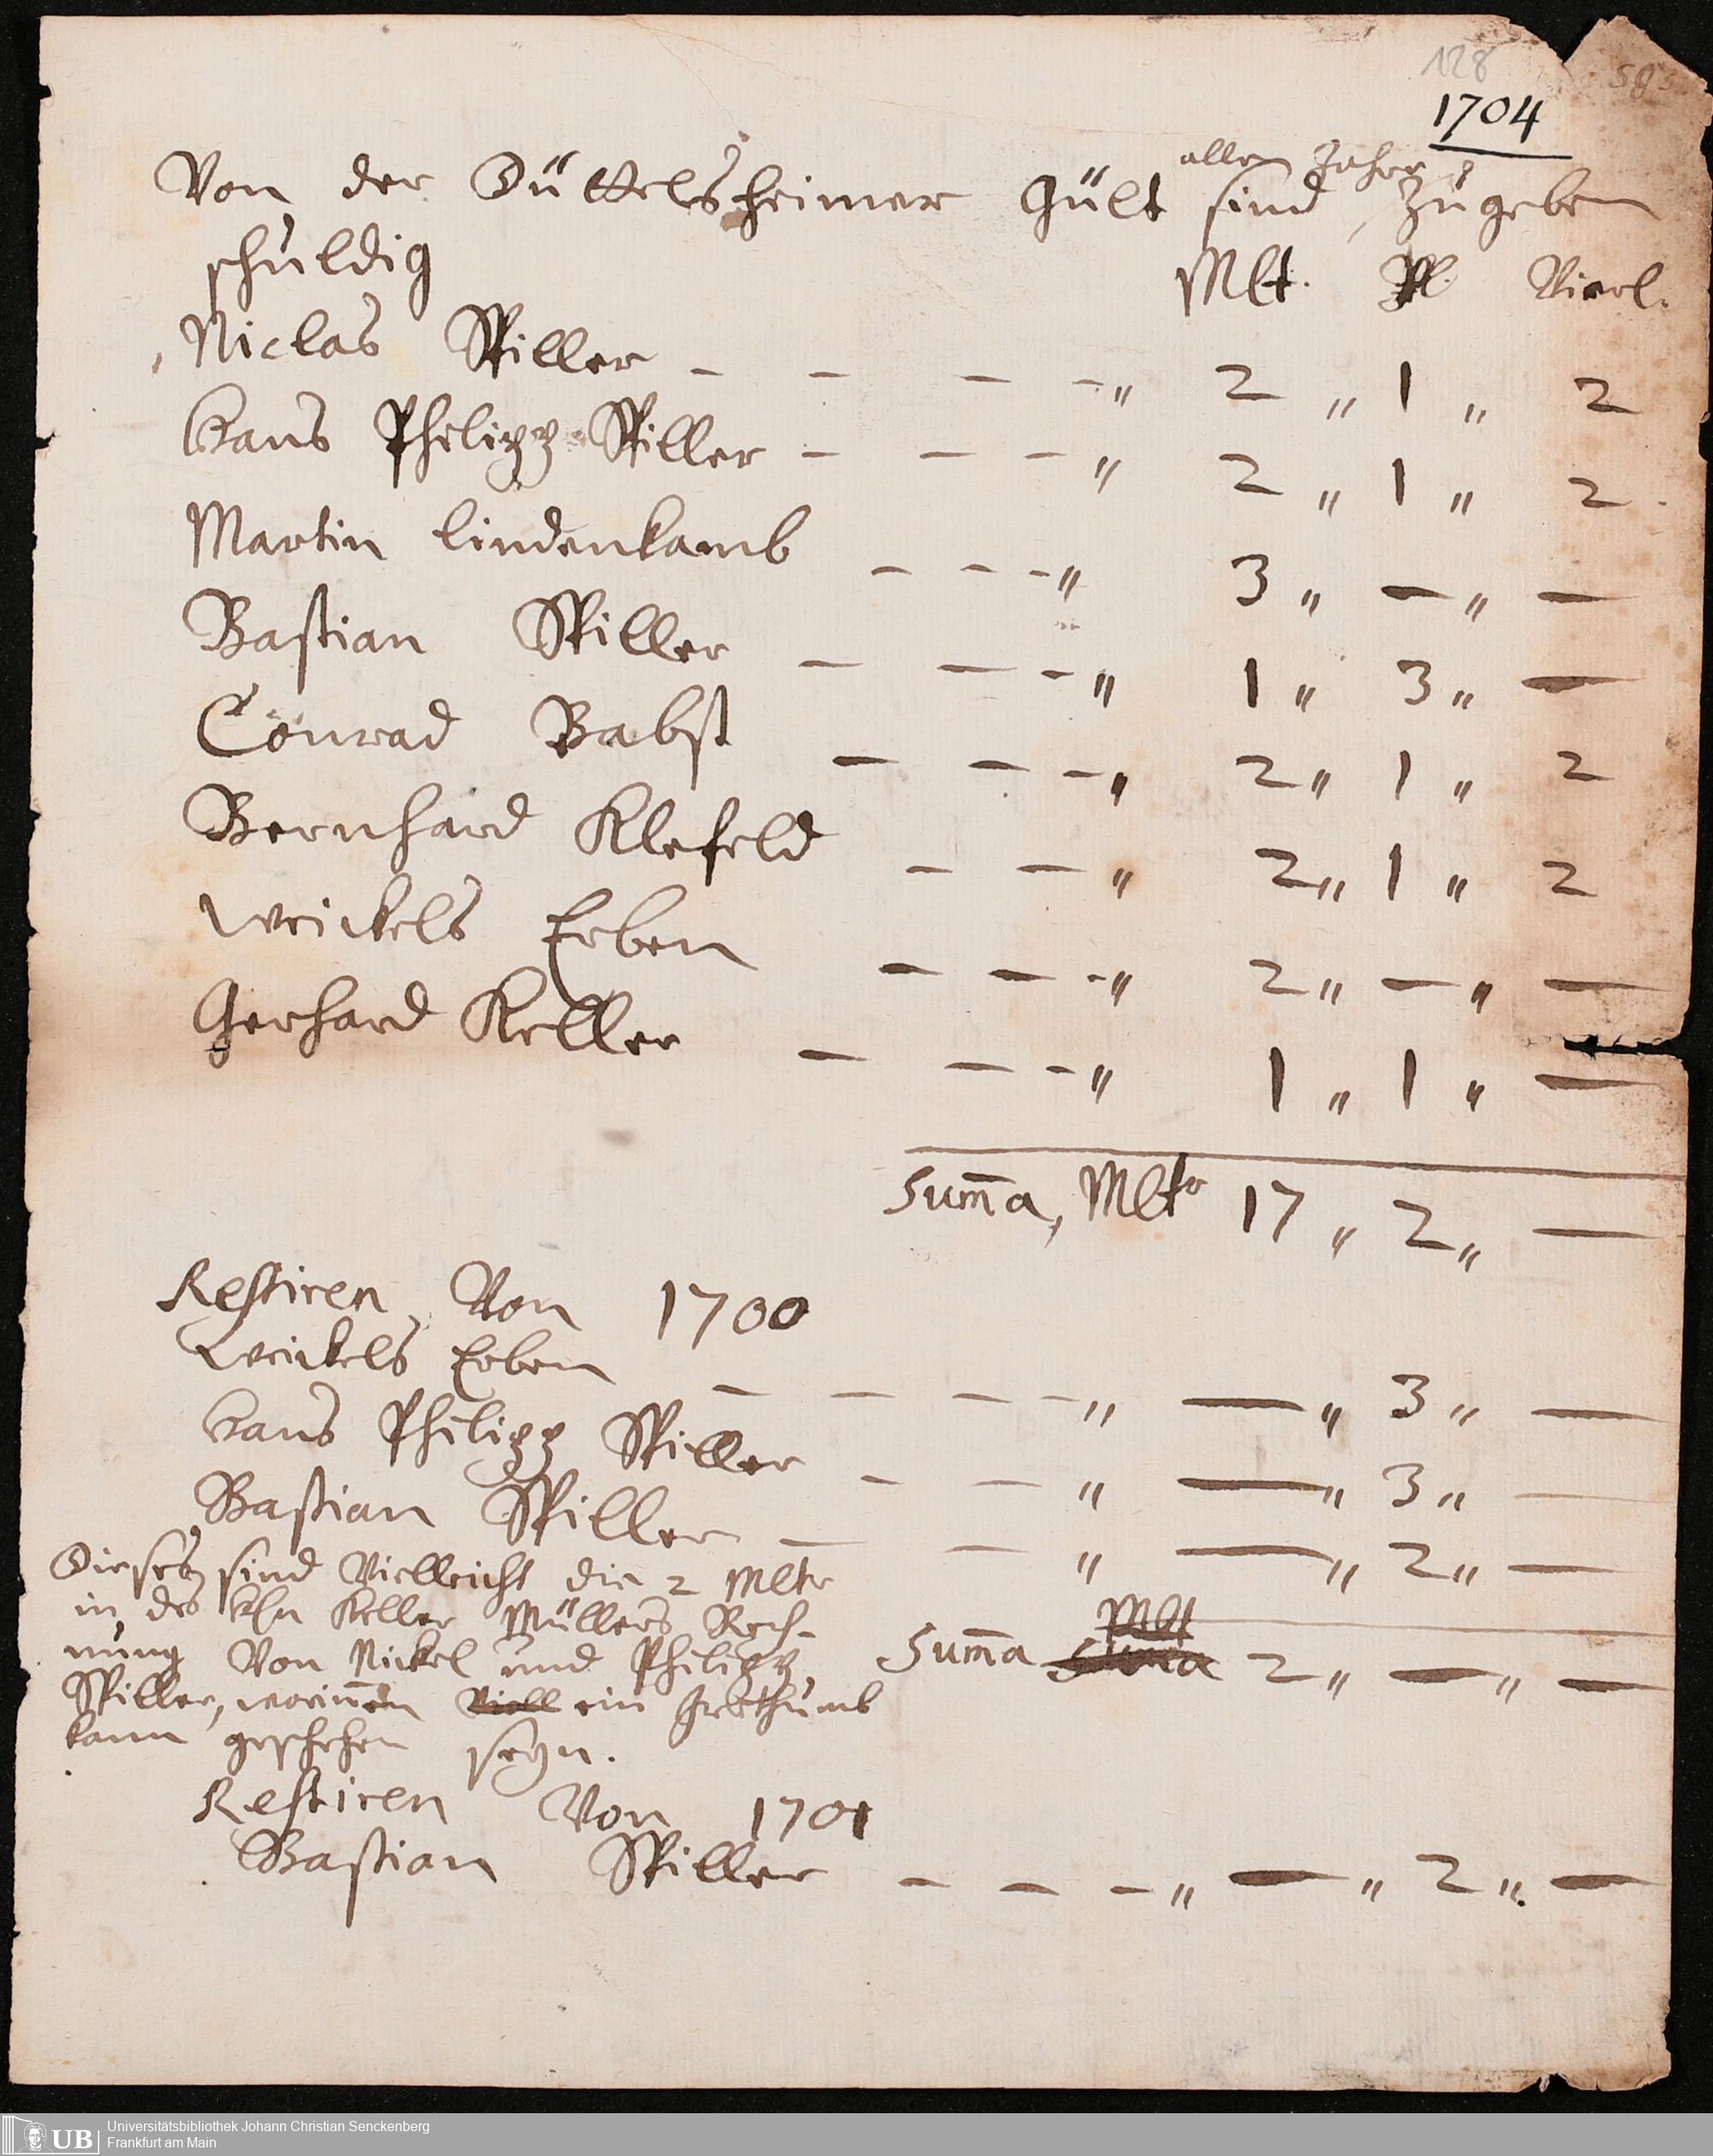 128
1704
Von der Düttelsheimer Gült sind allen Jahrs zu geben
schuldig
Mlt. Vierl.
Niclas Spiller - - - - " 2 " 1 " 2
Hans Philipp Spiller - - - " 2 " 1 " 2
Martin Lindenkamb - - - " 3 " — " —
Bastian Spiller - - - " 1 " 3 " —
Conrad Babst - - - " 2 " 1 " 2
Bernhard Klefeld - - " 2 " 1 " 2
Weickels Erben - - - " 2 " — " —
Gerhard Keller - - - " 1 " 1 " —
Sum̄a, Mltr 17 " 2 " —
Restiren Von 1700
Weickels Erben - - - - " — " 3 " —
Hans Philipp Spiller - - " — " 3 " —
Bastian Spiller - - " — " 2 " —
Dieses sind Vielleicht die 2 Mltr
in des Keller Müllers Rech-
nung Von Nickel und Philipp
Spiller, worinnen Viell ein Irrthumb
kann geschehen seyn.
Mlt
Sum̄a Sum̄a 2 " — " —
Restiren Von 1701
Bastian Spiller - - - " — " 2 " —
UB
Universitätsbibliothek Johann Christian Senckenberg
Frankfurt am Main